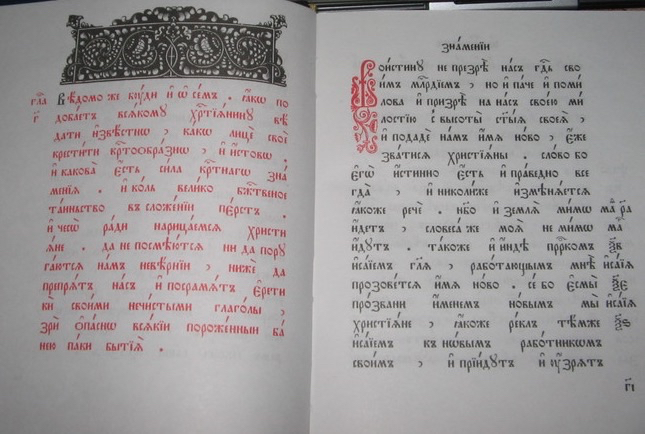 гла̀ Вѣ́домо же бꙋ́ди и҆ ѡ҆ се́мъ . ꙗ҆́кѡ по
г҃ доба́етъ всѧ́кому хрⷭ҇тїѧ́нинꙋ вѣ́
дати и҆звѣ́стнѡ , ка́кѡ лицѐ своѐ
крести́ти крⷭ҇тоѡбра́знѡ , и҆ и҆́стовѡ .
и҆ какова̀ є҆́сть си́ла крⷭ҇тнагѡ зна́
менїѧ . и҆ ко́ль вели́ко бжⷭ҇твеное
та́иньство въ сложе́нїи пе́рстъ .
и҆ чесѡ̀ ра́ди нарица́емсѧ христи
ѧ́не . да не посмѣю́тсѧ ни да пору
га́ютсѧ на́мъ невѣ́рнїи , нижѐ да
прпрѧ́тъ на́съ и҆ посра́мѧтъ є҆ре́ти
кѝ свои́ми нечи́стыми глаго́лы ,
зрѝ ѻ҆па́снѡ всѧ́кїи порожде́нныи ба́
нею па́ки бытїѧ̀ .
зна́менїи
Вои́стинꙋ не презрѣ̀ на́съ гдⷭ҇ь сво
и́мъ млⷭ҇рдїемъ , но и҆ па́че и҆ поми́
лова и҆ призрѣ̀ на на́съ своею̀ ми́
лостїю с высоты̀ ст҃ы́ѧ своеѧ̀ ,
и҆ подадѐ на́мъ и҆́мѧ но́во , є҆́же
зва́тисѧ христїѧ́ны . сло́во бо
є҆гѡ̀ и҆́стинно є҆́сть и҆ пра́ведно все
гда̀ , и҆ николи́же и҆змѣнѧ́етсѧ
ꙗ҆́коже речѐ . и҆́бо и҆ землѧ̀ ми́мѡ
и҆́детъ , словеса́ же моѧ̀ не ми́мѡ
и҆́дꙋтъ . та́коже и҆ и҆ндѣ̀ прⷪ҇ркомъ
и҆са́їемъ гл҃ѧ , рабо́тающымъ мнѣ̀ и҆са́їѧ
прозове́тсѧ и҆́мѧ но́во . се́ бо є҆смы̀ ѯ҃е
про́звани и҆́менемъ но́вымъ мы̀ и҆са́їѧ
христїѧ́не , ꙗ҆́коже ре́клъ тѣ́мже ѯ҃ѕ
и҆са́їемъ къ но́вымъ рабо́тникѡмъ
свои́мъ , и҆ прїи́дꙋтъ и҆ ᲂу҆́зрѧтъ
г҃і